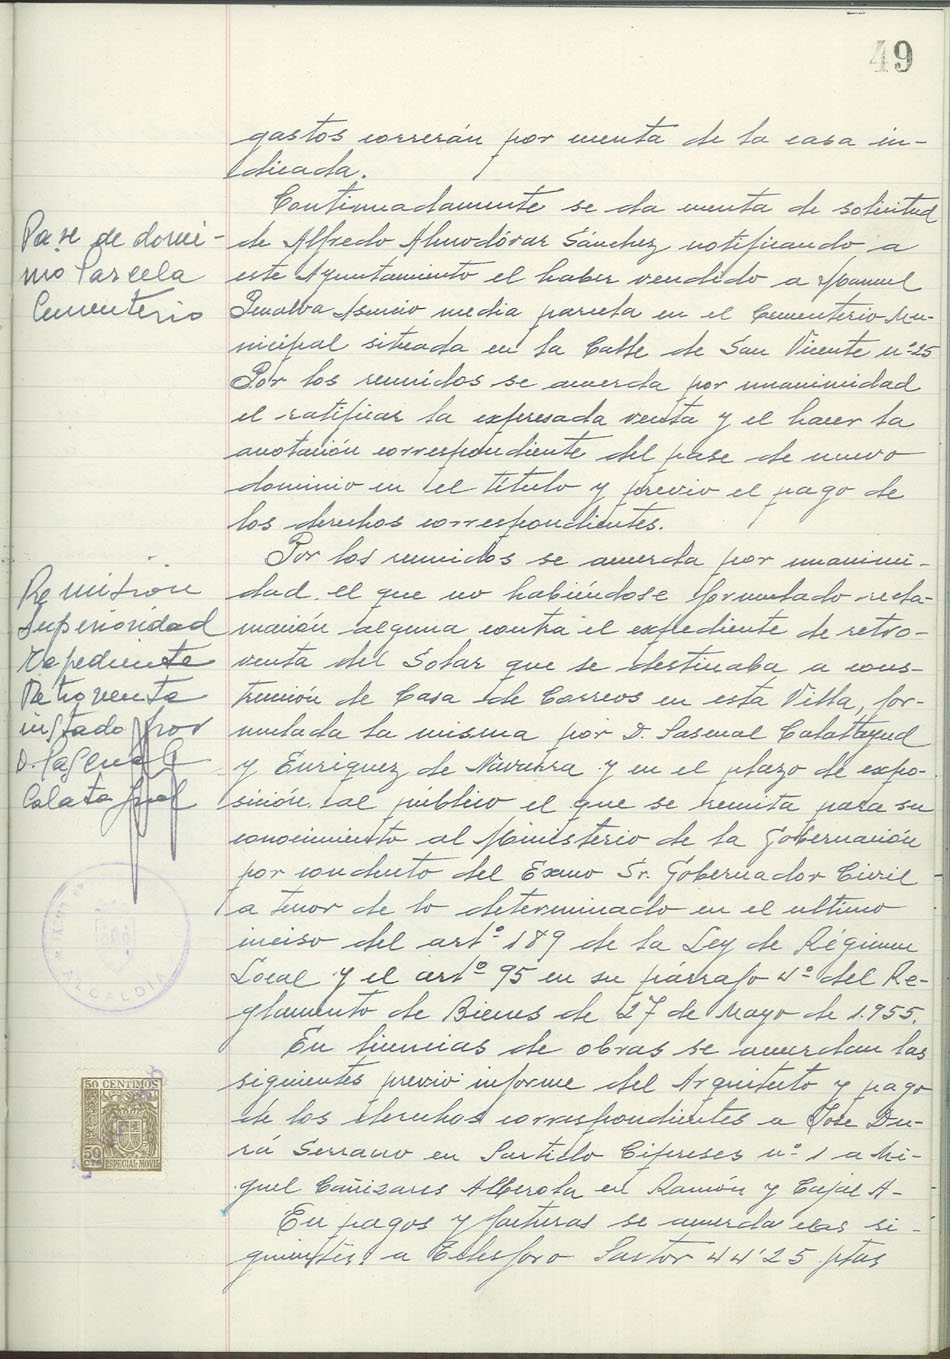 49
gastos correrán por cuenta de la casa in-
dicada.
Continuadamente se da cuenta de solicitud
de Alfredo Almodóvar Sánchez notificando a
este Ayuntamiento el haber vendido a Manuel
Penalva Asencio media parcela en el Cementerio Mu-
nicipal situada en la Calle de San Vicente nº 25
Por los reunidos se acuerda por unanimidad
el ratificar la expresada venta y el hacer la
anotación correspondiente del pase de nuevo
dominio en el título y previo el pago de
los derechos correspondientes.
Por los reunidos se acuerda por unanimi-
dad el que no habiéndose formulado recla-
mación alguna contra el expediente de retro-
venta del Solar que se destinaba a cons-
trucción de Casa de Correos en esta Villa, for-
mulada la misma por D. Pascual Calatayud
y Enriquez de Navarra y en el plazo de expo-
sición al público el que se remita para su
conocimiento al Ministerio de la Gobernación
por conducto del Exmo Sr. Gobernador Civil
a tenor de lo determinado en el ultimo
inciso del artº 189 de la Ley de Régimen
Local y el artº 95 en su párrafo 4º del Re-
glamento de Bienes de 27 de Mayo de 1.955.
En licencias de obras se acuerdan las
siguientes previo informe del Arquitecto y pago
de los derechos correspondientes a José Du-
rá Serrano en Partido Cipreses nº 1 a Mi-
guel Cañizares Alberola en Ramón y Cajal A-
En pagos y facturas se acuerda las si-
guientes a Telesforo Pastor 44'25 ptas
Pase de domi-
nio Parcela
Cementerio
Remisión
Superioridad
Expediente
Retroventa
instado por
D. Pascual
Calatayud
ALCALDIA
50 CENTIMOS
50
CTS
ESPECIAL MOVIL